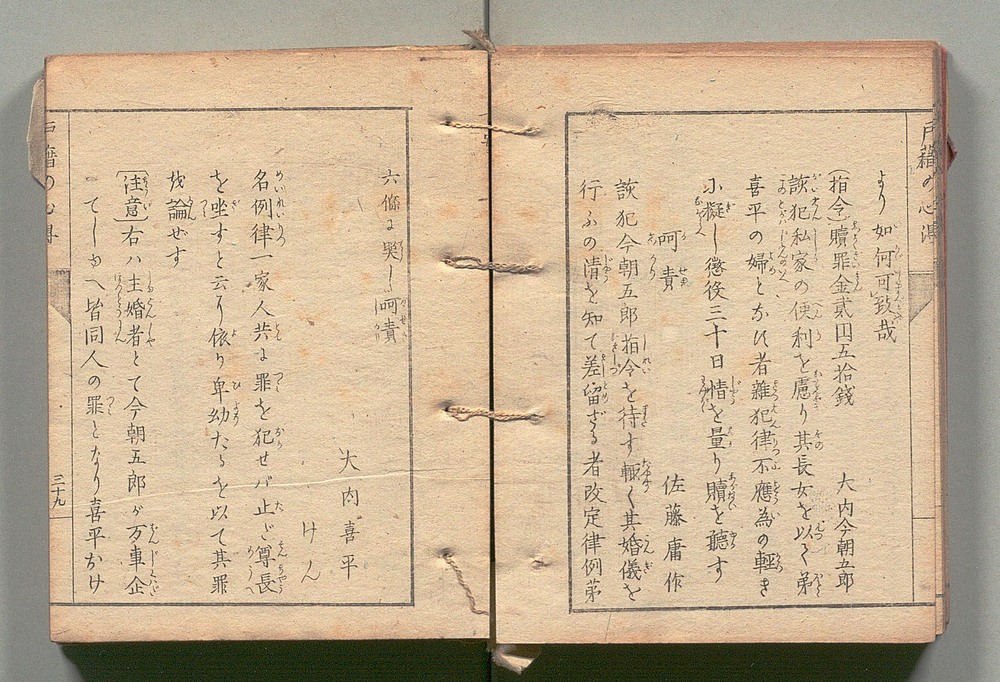 戸籍の心得
より如何可致哉
(指令)贖罪金貳円五拾錢 大内今朝五郎
該犯私家の便利を慮り其長女を以て弟
喜平の婦となせし者雜犯律不應為の輕き
に擬し懲役三十日情を量り贖を聽す
呵責 佐藤庸作
該犯今朝五郎指令を待す輙く其婚儀を
行ふの情を知て差留ざる者改定律例第
六條に照し呵責
大内喜平
けん
名例律一家人共に罪を犯せバ止ゞ尊長
を坐すと云り依り卑幼たるを以て其罪
を論ぜす
(注意)右ハ主婚者とて今朝五郎が万事企
てしゆへ皆同人の罪となり喜平おけ
三十九